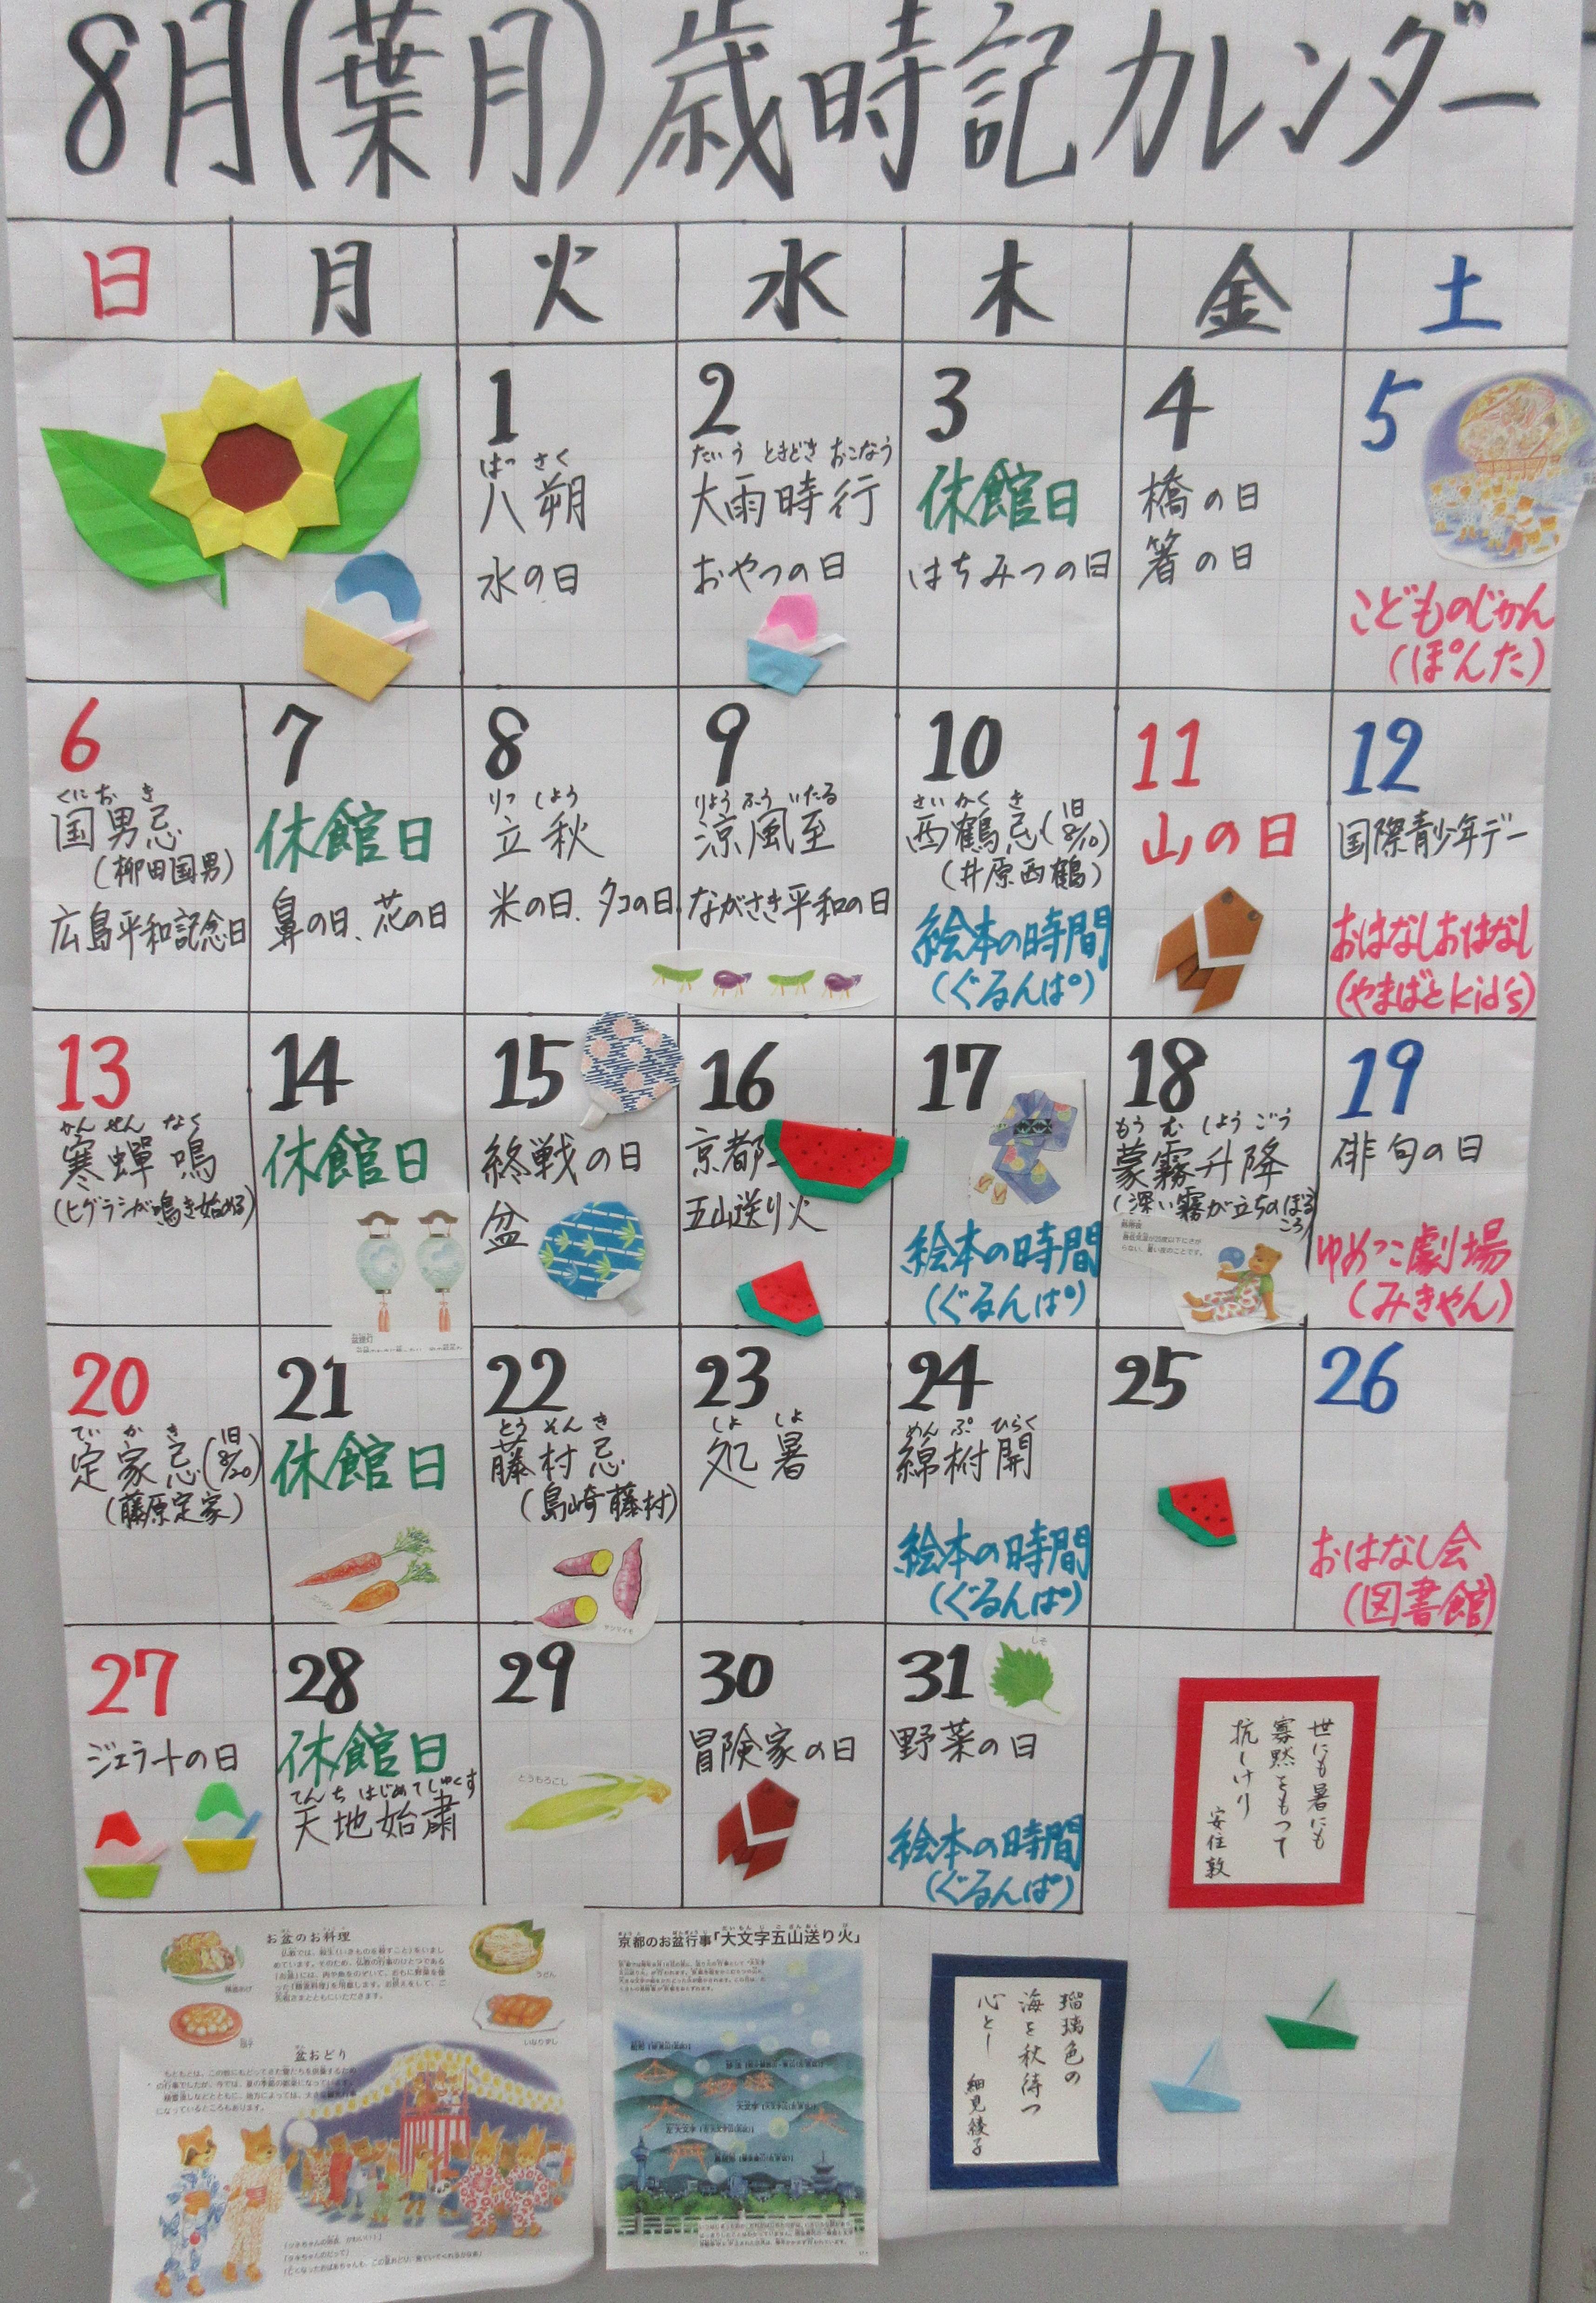 8月(葉月)歳時記カレンダー
日 月 火 水 木 金 土
1
はっ さく
八朔
水の日
2
たいう ときどき おこなう
大雨時行
おやつの日
3
休館日
はちみつの日
4
橋の日
箸の日
5
こどものじかん
(ぽんた)
6
くに お き
国男忌
(柳田国男)
広島平和記念日
7
休館日
鼻の日、花の日
8
りっ しゅう
立秋
米の日、タコの日
9
りょう ふう いたる
涼風至
ながさき平和の日
10
さい かく き
西鶴忌(旧8/10)
(井原西鶴)
絵本の時間
(ぐるんぱ)
11
山の日
12
国際青少年デー
おはなしおはなし
(やまばとkid's)
13
かん せん なく
寒蟬鳴
(ヒグラシが鳴き始める)
14
休館日
盆提灯
15
終戦の日
盆
16
京都
五山送り火
17
絵本の時間
(ぐるんぱ)
18
もう む しょう ごう
蒙霧升降
(深い霧が立ちのぼる
ころ)
19
俳句の日
ゆめっこ劇場
(みきやん)
20
てい か き
定家忌(旧8/20)
(藤原定家)
21
休館日
ニンジン
22
とう そん き
藤村忌
(島崎藤村)
サツマイモ
23
しょ しょ
処暑
24
めん ぷ ひらく
綿柎開
絵本の時間
(ぐるんぱ)
25
26
おはなし会
(図書館)
27
ジェラートの日
28
休館日
てんち はじめて しゅくす
天地始粛
29
とうもろこし
30
冒険家の日
31
しそ
野菜の日
絵本の時間
(ぐるんぱ)
世にも暑にも
寡黙をもつて
抗しけり
安住敦
瑠璃色の
海を秋待つ
心とし
細見綾子
お盆のお料理
うどん
団子
いなりずし
盆おどり
京都のお盆行事「大文字五山送り火」